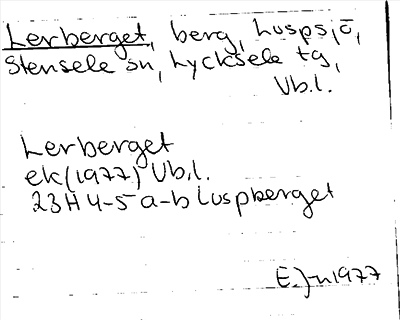 Lerberget, berg, Lusps, ö,
Stensele sn, Lycksele tg,
Vb.l.
Lerberget
ek(1977) Vb.l.
23H 4-5 a-b Luspberget
E.J-n 1977